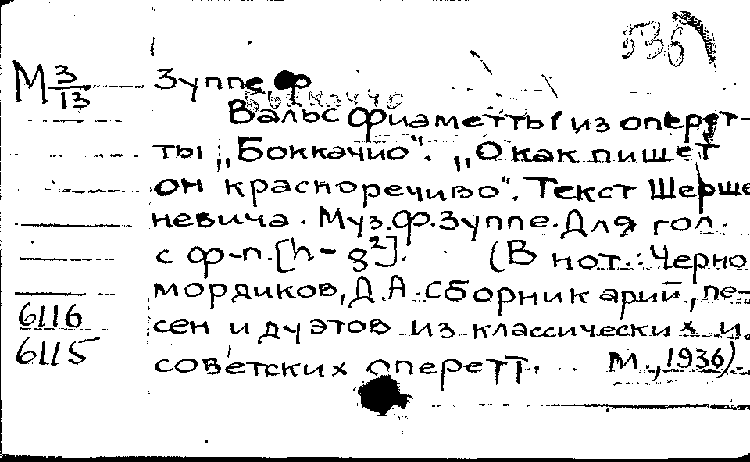 536
М 3/13 Зуппе Ф
Вальс Фиаметты из оперет-
ты „Боккачио". „О как пишет
он красноречиво". Текст Шерше
невича. Муз. Ф. Зуппе. Для гол.
с ф-п. [h - g²]. (В нот.: Черно
мордиков, Д.А. Сборник арий, пе-
6116 сен и дуэтов из классических и
6115 советских оперетт. М., 1936).